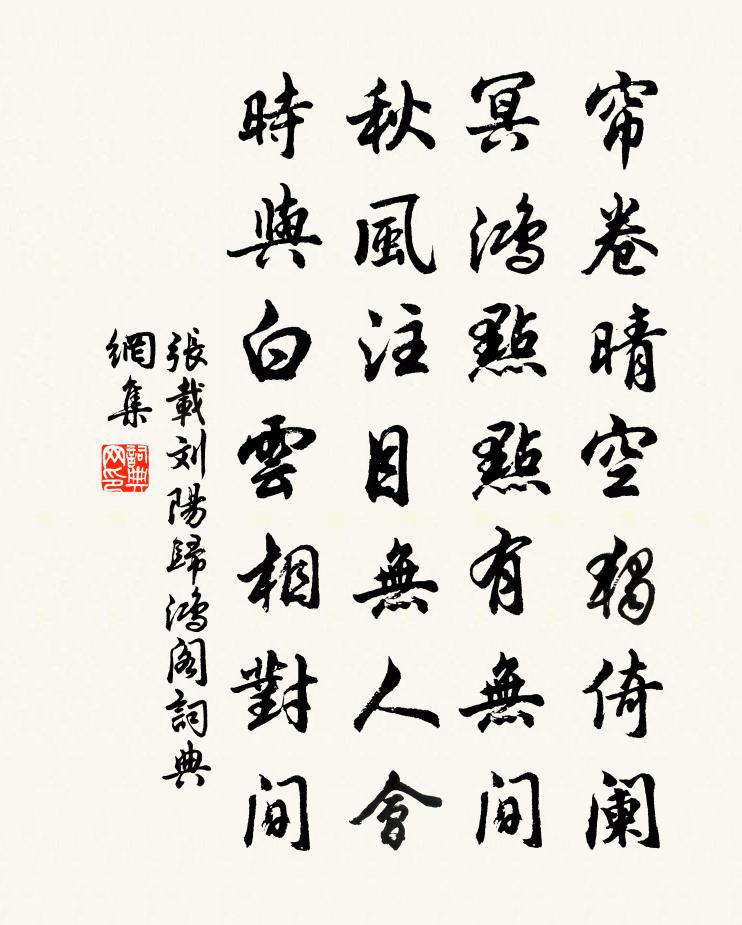 帘卷晴空獨倚闌
冥鴻點點有無間
秋風注目無人會
時與白雲相對間
張載刘陽歸鴻阁詞典
網集
詞典
网印